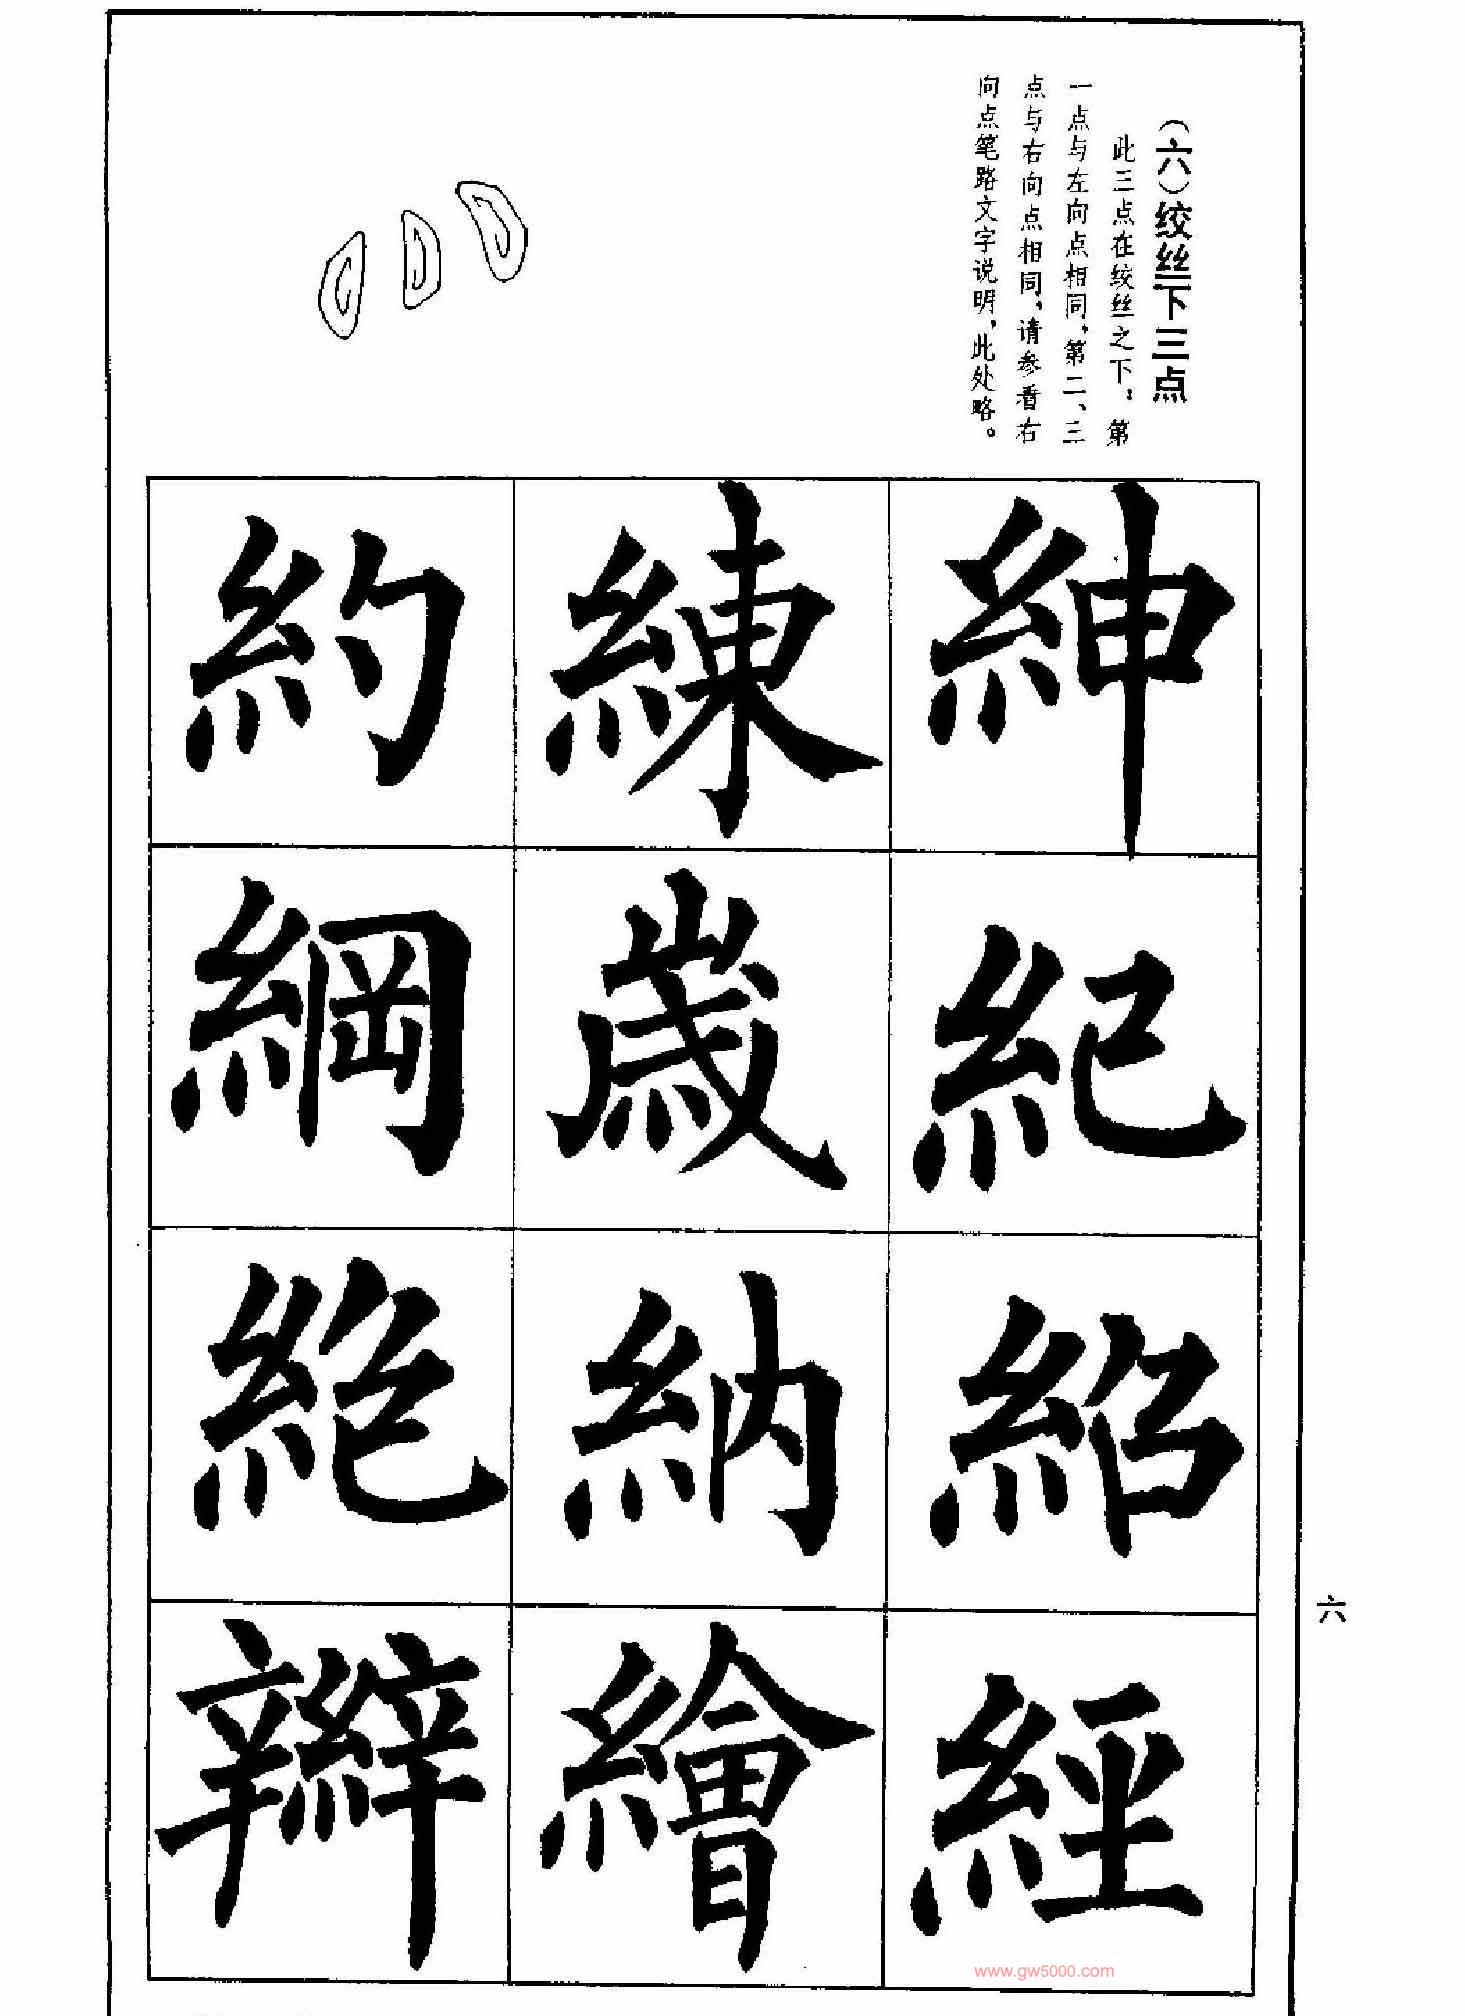 (六)绞丝下三点
此三点在绞丝之下，第
一点与左向点相同，第二、三
点与右向点相同，请参看右
向点笔路文字说明，此处略。
紳
紀
紹
經
練
歲
納
繪
約
綱
絶
辮
六
www.gw5000.com